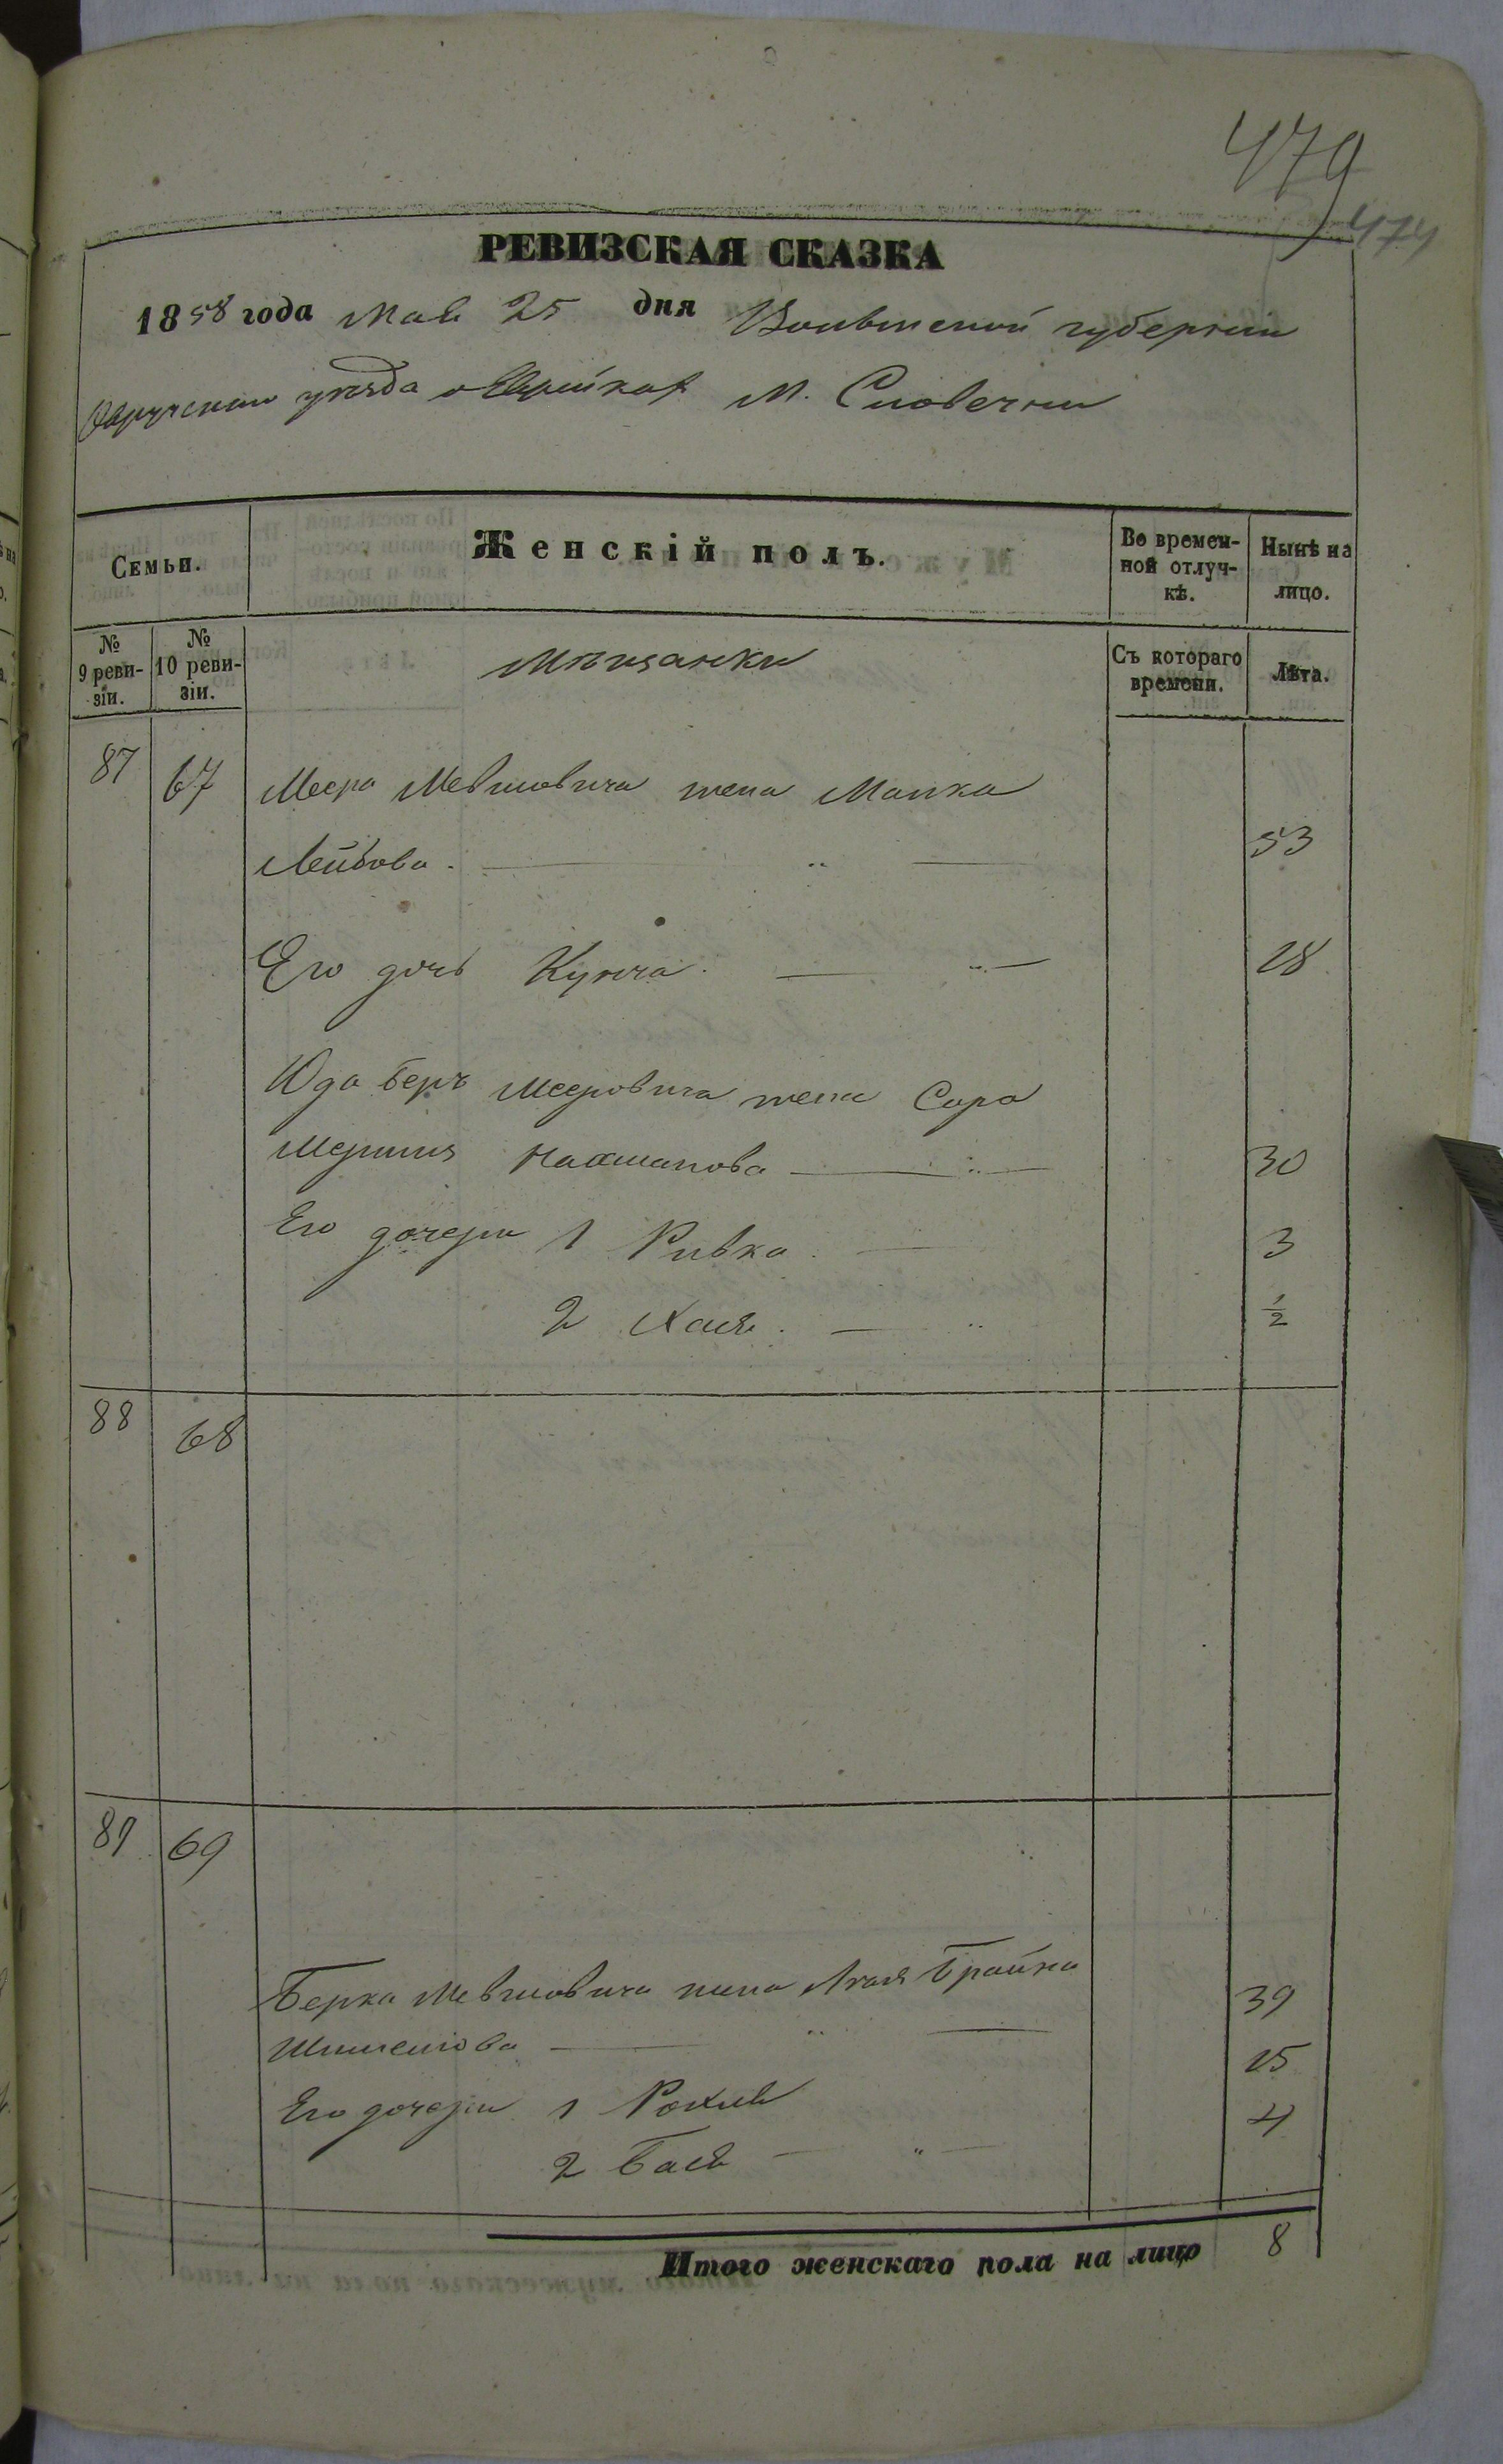 479
474
РЕВИЗСКАЯ СКАЗКА
1858 года Мая 25 дня Волынской губернии
Овручского уезда о Еврейках М. Словечни
Семьи.
Женскій полъ.
Во времен-
ной отлуч-
кѣ.
Нынѣ на
лицо.
№
9 реви-
зіи.
№
10 реви-
зіи.
Мѣщанки
Съ котораго
времени.
Лѣта.
87 67 Меера Мевшовича жена Малка
Лейбова 53
Его дочь Кунча 18
Юда Беръ Мееровича жена Сора
Нахманова 30
Его дочери 1 Ривка 3
2 Хася 1/2
88 68
89 69
Берка Мевшовича жена Брайна 39
15
Его дочери 1 Рохля 4
2 Бася
Итого женскаго пола на лицо 8